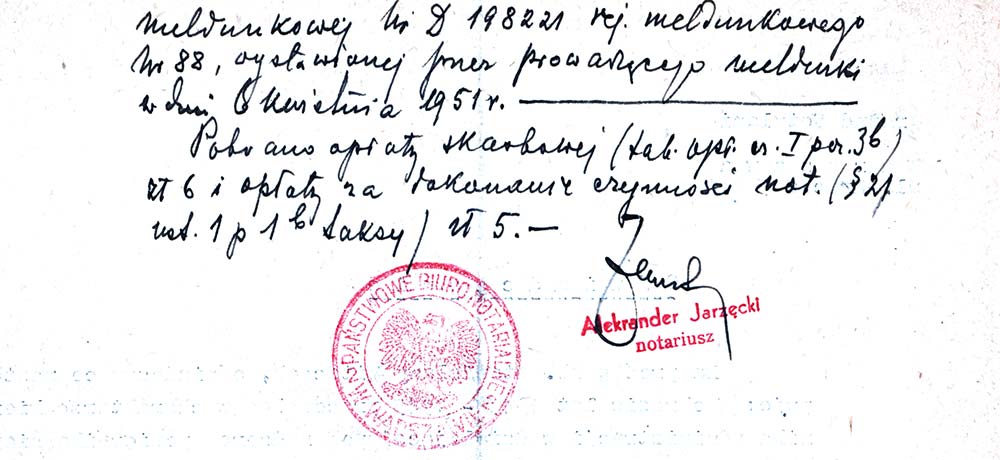 meldunkowej Nr D 198221 rej. meldunkowego
Nr 88, wystawionej przez prowadzącego meldunki
w dniu 6 kwietnia 1951 r. —
Pobrano opłaty skarbowej (tab. opł. cz. I poz. 3b)
zł 6 i opłaty za dokonanie czynności not. (§ 21
ust. 1 p 1 b taksy) zł 5.—
Aleksander Jarzęcki
notariusz
PAŃSTWOWE BIURO NOTARIALNE
W WARSZAWIE